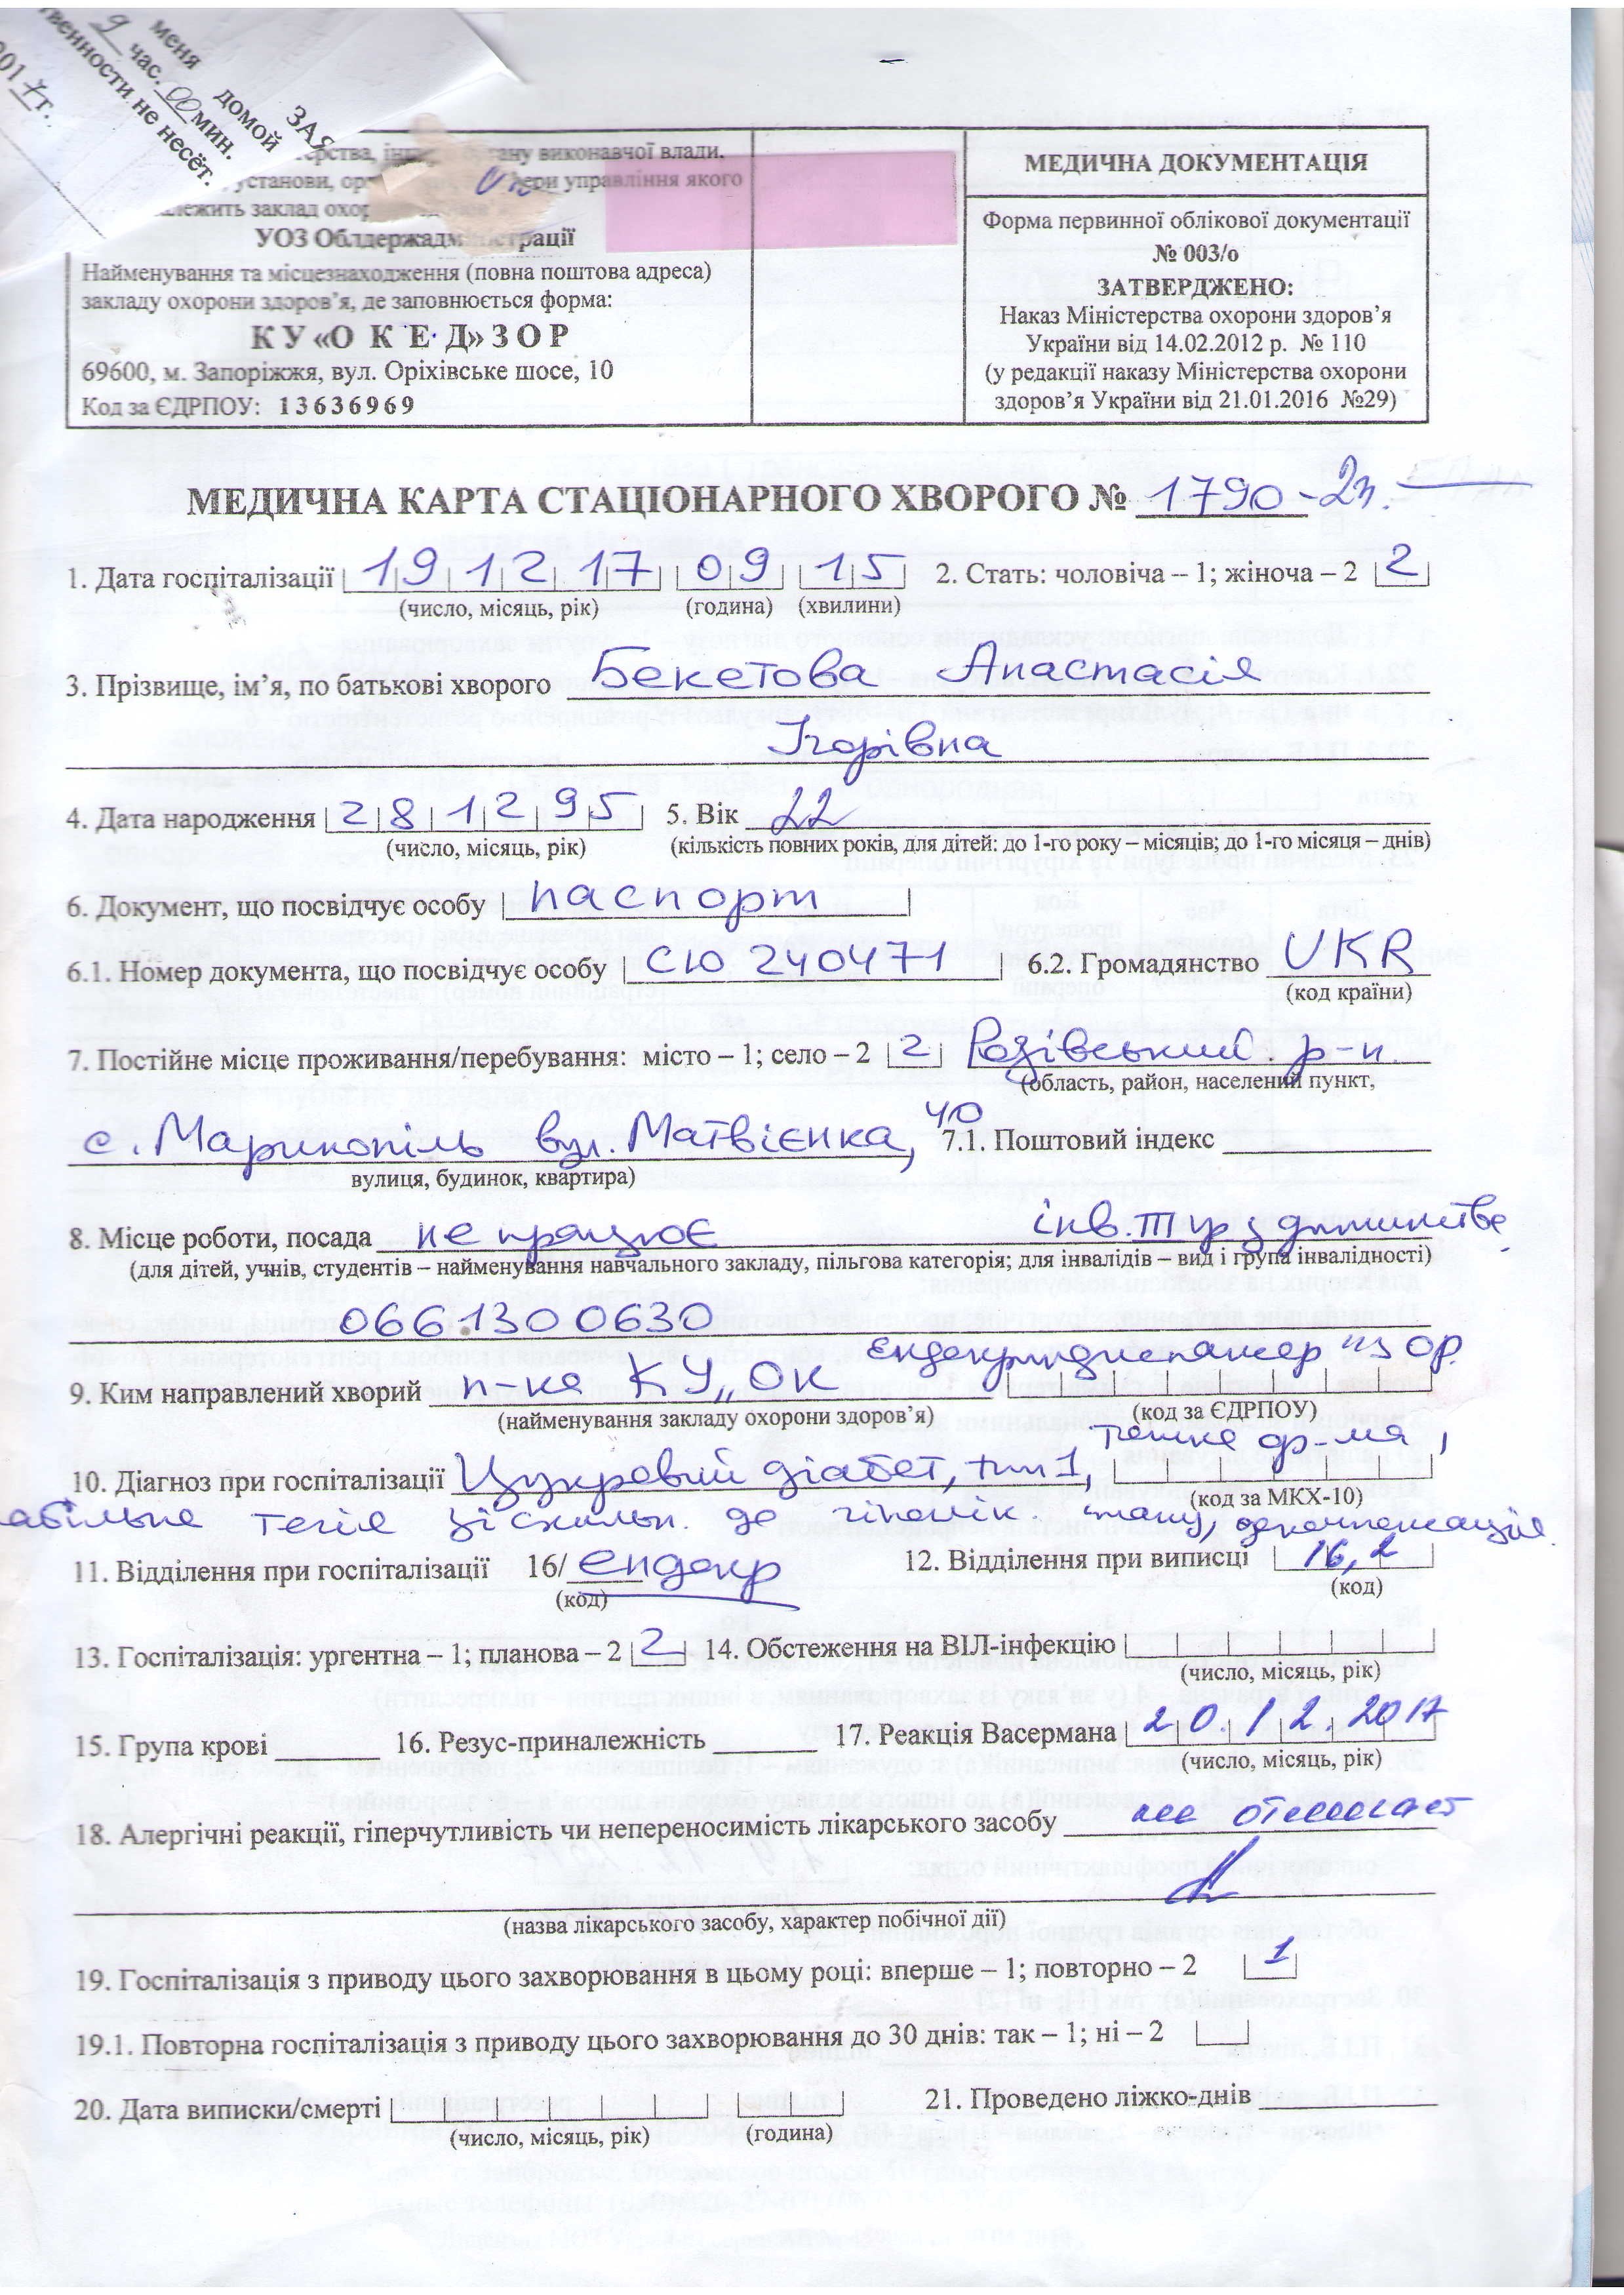 ЗАЯ
меня домой
9 час. 00 мин.
венности не несёт.
2017 г.
ерства, ін ану виконавчої влади.
установи, ери управління якого
лежить заклад охор
УОЗ Облдержадміністрації
Найменування та місцезнаходження (повна поштова адреса)
закладу охорони здоров'я, де заповнюється форма:
КУ «О К Е Д» ЗОР
69600, м. Запоріжжя, вул. Оріхівське шосе, 10
Код за ЄДРПОУ: 13636969
МЕДИЧНА ДОКУМЕНТАЦІЯ
Форма первинної облікової документації
№ 003/о
ЗАТВЕРДЖЕНО:
Наказ Міністерства охорони здоров'я
України від 14.02.2012 р. № 110
(у редакції наказу Міністерства охорони
здоров'я України від 21.01.2016 №29)
МЕДИЧНА КАРТА СТАЦІОНАРНОГО ХВОРОГО № 1790-2п.
1. Дата госпіталізації 19 12 17 09 15 2. Стать: чоловіча – 1; жіноча – 2 2
(число, місяць, рік) (година) (хвилини)
3. Прізвище, ім'я, по батькові хворого Бекетова Анастасія
Ігорівна
4. Дата народження 28 12 95 5. Вік 22
(число, місяць, рік) (кількість повних років, для дітей: до 1-го року – місяців; до 1-го місяця – днів)
6. Документ, що посвідчує особу паспорт
6.1. Номер документа, що посвідчує особу СЮ 240471 6.2. Громадянство UKR
(код країни)
7. Постійне місце проживання/перебування: місто – 1; село – 2 2 Розівський р-н
(область, район, населений пункт,
с. Марикопіль вул. Матвієнка, 40 7.1. Поштовий індекс
вулиця, будинок, квартира)
8. Місце роботи, посада не працює інв. III гр з дитинства
(для дітей, учнів, студентів – найменування навчального закладу, пільгова категорія; для інвалідів – вид і група інвалідності)
0661300630
ендокриндиспансер" ЗОР
9. Ким направлений хворий п-ка КУ „ОК
(найменування закладу охорони здоров'я) (код за ЄДРПОУ)
10. Діагноз при госпіталізації Цукровий діабет, тип 1, тяжка ф-ма,
(код за МКХ-10)
абільна течія зі схильн. до гіпоглік. стану, декомпенсація.
11. Відділення при госпіталізації 16/ ендокр 12. Відділення при виписці 16,2
(код) (код)
13. Госпіталізація: ургентна – 1; планова – 2 2 14. Обстеження на ВІЛ-інфекцію
(число, місяць, рік)
15. Група крові 16. Резус-приналежність 17. Реакція Васермана 20.12.2017
(число, місяць, рік)
18. Алергічні реакції, гіперчутливість чи непереносимість лікарського засобу не отмечает
(назва лікарського засобу, характер побічної дії)
19. Госпіталізація з приводу цього захворювання в цьому році: вперше – 1; повторно – 2 1
19.1. Повторна госпіталізація з приводу цього захворювання до 30 днів: так – 1; ні – 2
20. Дата виписки/смерті 21. Проведено ліжко-днів
(число, місяць, рік) (година)